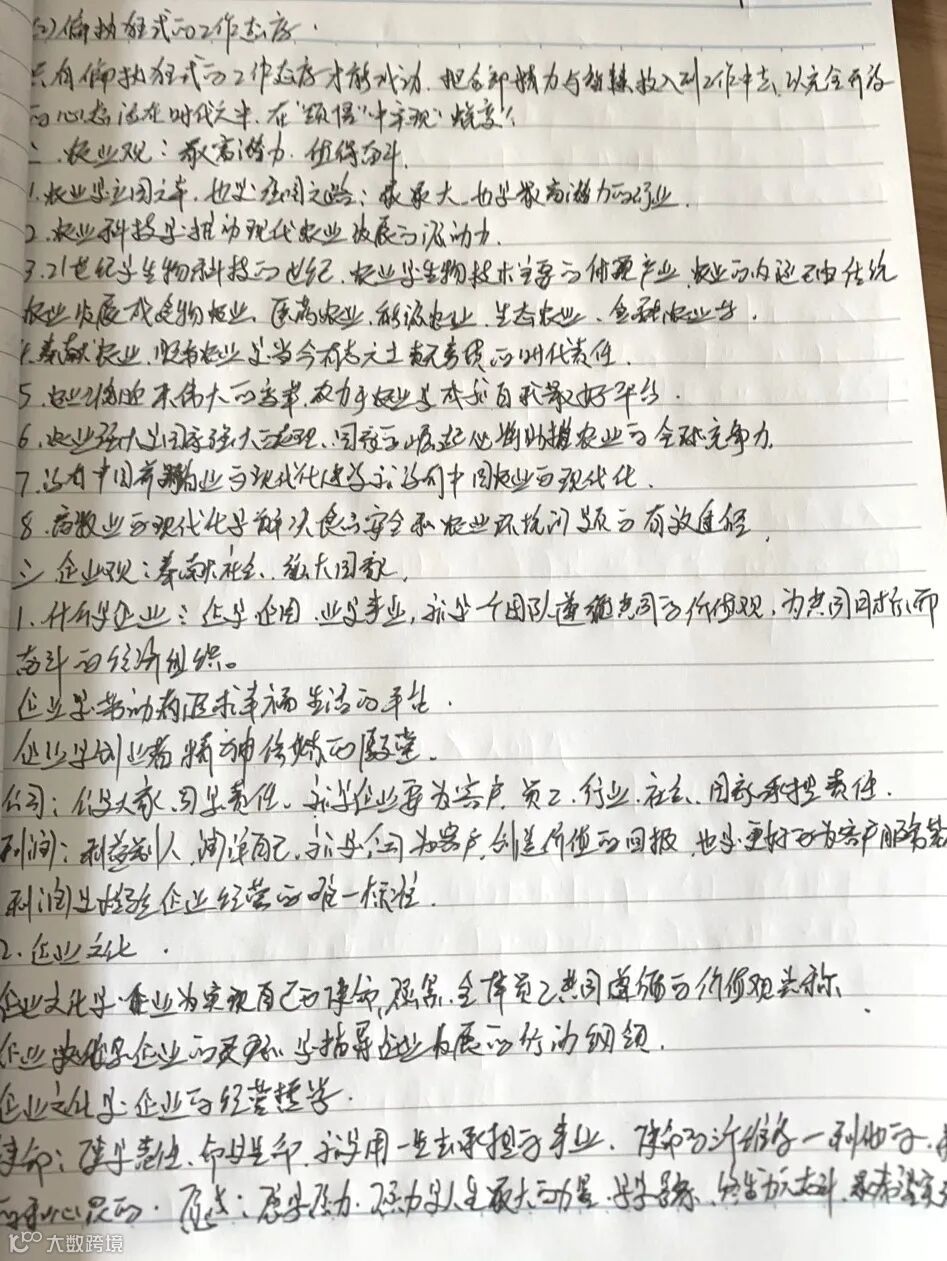 (2)偏执狂式的工作态度.
只有偏执狂式的工作态度才能成功.把全部精力与智慧投入到工作中去,以完全开放
的心态活在时代之中.在"顿悟"中实现"蜕变".
二.农业观:最高潜力.值得奋斗.
1.农业是立国之本,也是强国之路;最大,也是最高潜力的行业.
2.农业科技是推动现代农业发展的源动力.
3.21世纪是生物科技的世纪,农业是生物技术主要的体现产业,农业的内涵已由传统
农业发展成生物农业、医药农业、能源农业、生态农业、金融农业等.
4.奉献农业,服务农业是当今有志之士的时代责任.
5.农业伟大的变革.致力于农业是成就自我最好平台.
6.农业强大是国家强大的体现.国家的崛起必将助推农业的全球竞争力.
7.没有中国养殖业的现代化便没有中国农业的现代化.
8.畜牧业的现代化是解决食品安全和农业环境问题的有效途径.
三.企业观:奉献社会、强大国家.
1.什么是企业:企是企图.业是事业,就是一个团队遵循共同的价值观,为共同目标而
奋斗的经济组织。
企业是劳动者追求幸福生活的平台.
企业是创业者精神传承的殿堂.
公司:公是大家.司是责任.就是企业要为客户、员工、行业、社会、国家承担责任.
利润:利益别人,润泽自己.就是公司为客户创造价值的回报,也是更好的为客户服务
利润是检验企业经营的唯一标准.
2.企业文化.
企业文化是企业为实现自己的使命,愿景,全体员工共同遵循的价值观总称
企业文化是企业的灵魂是指导企业发展的行动纲领.
企业文化是企业的经营哲学.
使命:使是责任.命是生命.就是用一生去承担的事业.使命的
愿景:愿是愿力.愿力是人生最大的力量.景是景象.
大数跨境